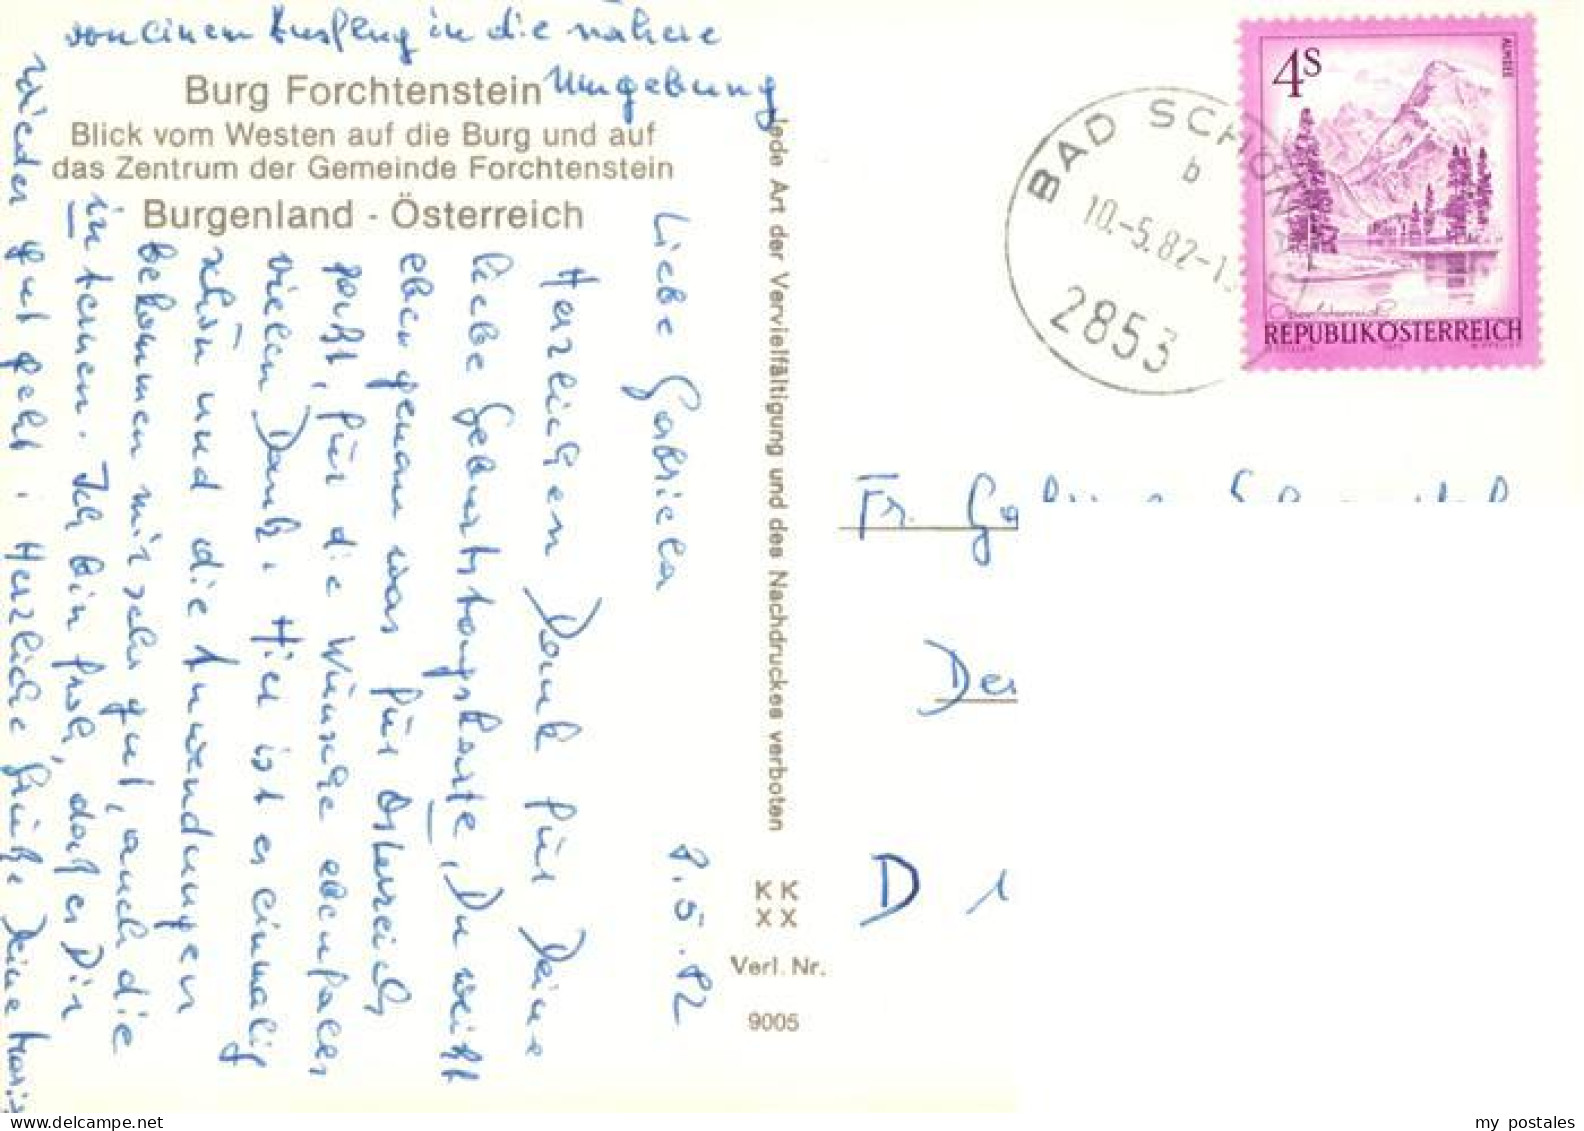 von einem Ausflug in die nähere
Umgebung
Burg Forchtenstein
Blick vom Westen auf die Burg und auf
das Zentrum der Gemeinde Forchtenstein
Burgenland - Österreich
8.5.82
Liebe Gabriela
Herzlichen Dank für Deine
liebe Geburtstagskarte, Du weißt
eben genau was für Österreich
paßt, für die Wünsche ebenfalls
vielen Dank. Hier ist es einmalig
schön und die Anwendungen
bekommen mir sehr gut, auch die
internen. Ich bin froh, daß es Dir
wieder gut geht. Herzliche Grüße Deine Maria
Jede Art der Vervielfältigung und des Nachdruckes verboten
KK
XX
Verl. Nr.
9005
BAD SCHÖNAU
b
10.-5.82-1
2853
4S
ALMSEE
Oberösterreich
REPUBLIK ÖSTERREICH
Fr. Ga
Der
D 1
my postales